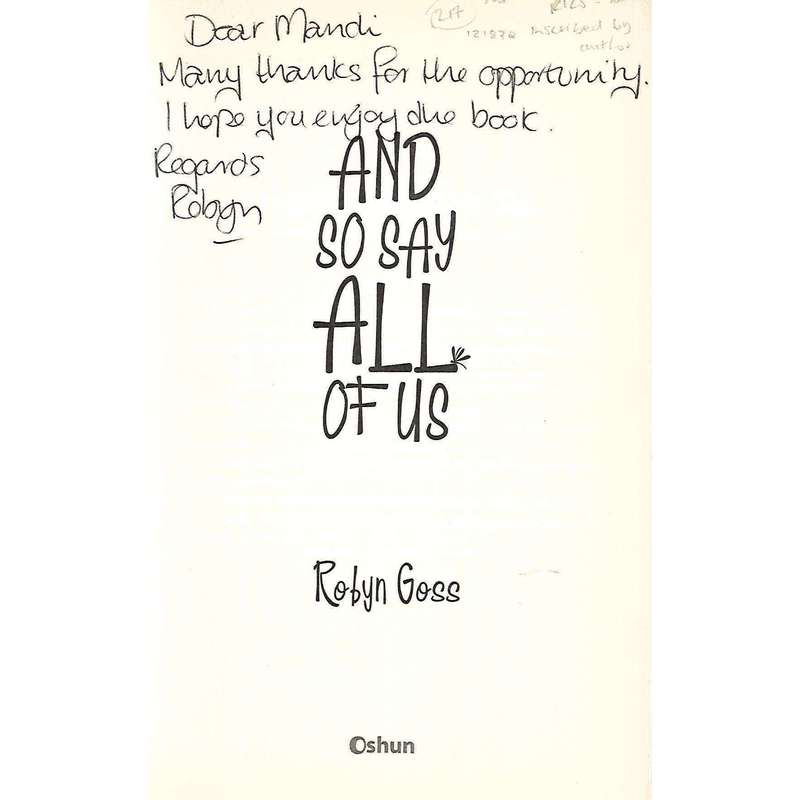 Dear Mandi
Many thanks for the opportunity.
I hope you enjoy the book.
Regards
Robyn
217
R125
121876 Inscribed by
author
AND
SO SAY
ALL
OF US
Robyn Goss
Oshun